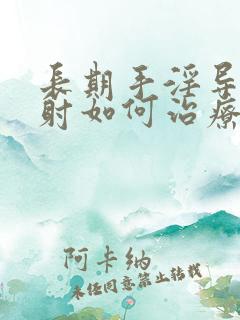 长期手淫导
射如何治疗
阿卡纳
未经同意禁止转载